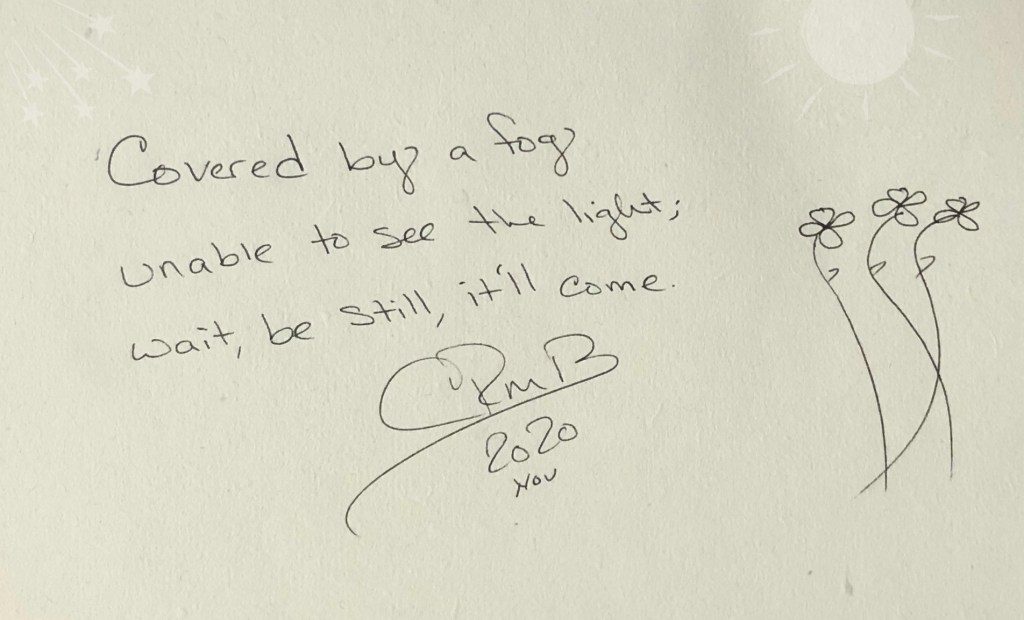 Covered by a fog
unable to see the light;
wait, be still, it'll come.
CRMB
2020
NOV